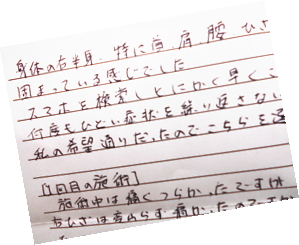 身体の右半身、特に首、肩、腰 ひざ
固まっている感じでした
スマホを検索しとにかく早くこ
何度もひどい症状を繰り返さない
私の希望通りだったのでこちらを選
[1回目の施術]
施術中は痛くつらかったです(体
ひざは変わらず痛かったのですが